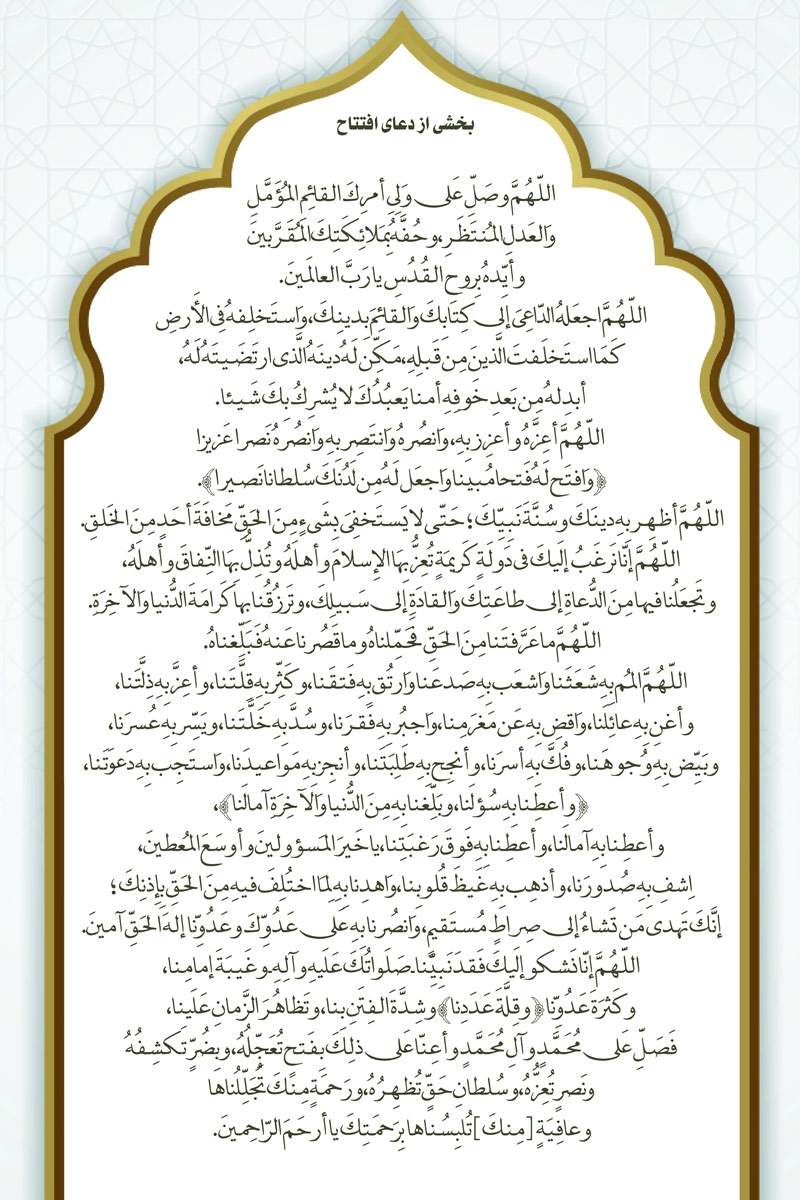 بخشی از دعای افتتاح
اللّهُمَّ وصَلِّ عَلى وَلِىِّ أمرِكَ القائِمِ المُؤَمَّلِ
وَالعَدلِ المُنتَظَرِ، وحُفَّهُ بِمَلائِكَتِكَ المُقَرَّبينَ
وأيِّدهُ بِروحِ القُدُسِ يا رَبَّ العالَمينَ.
اللّهُمَّ اجعَلهُ الدّاعِيَ إلى كِتابِكَ وَالقائِمَ بِدينِكَ، وَاستَخلِفهُ فِى الأَرضِ
كَمَا استَخلَفتَ الَّذينَ مِن قَبلِهِ، مَكِّن لَهُ دينَهُ الَّذِى ارتَضَيتَهُ لَهُ،
أبدِلهُ مِن بَعدِ خَوفِهِ أمنا يَعبُدُكَ لا يُشرِكُ بِكَ شَيئا.
اللّهُمَّ أعِزَّهُ وأعزِز بِهِ، وَانصُرهُ وَانتَصِر بِهِ وَانصُرهُ نَصرا عَزيزا
﴿وَافتَح لَهُ فَتحا مُبينا وَاجعَل لَهُ مِن لَدُنكَ سُلطانا نَصيرا﴾.
اللّهُمَّ أظهِر بِهِ دينَكَ وسُنَّةَ نَبِيِّكَ؛ حَتّى لا يَستَخفِىَ بِشَىءٍ مِنَ الحَقِّ مَخافَةَ أحَدٍ مِنَ الخَلقِ.
اللّهُمَّ إنّا نَرغَبُ إلَيكَ فى دَولَةٍ كَريمَةٍ تُعِزُّ بِهَا الإِسلامَ وأهلَهُ وتُذِلُّ بِهَا النِّفاقَ وأهلَهُ،
وتَجعَلُنا فيها مِنَ الدُّعاةِ إلى طاعَتِكَ وَالقادَةِ إلى سَبيلِكَ، وتَرزُقُنا بِها كَرامَةَ الدُّنيا وَالآخِرَةِ.
اللّهُمَّ ما عَرَّفتَنا مِنَ الحَقِّ فَحَمِّلناهُ وما قَصُرنا عَنهُ فَبَلِّغناهُ.
اللّهُمَّ المُم بِهِ شَعَثَنا وَاشعَب بِهِ صَدعَنا وَارتُق بِهِ فَتقَنا، وكَثِّر بِهِ قِلَّتَنا، وأعِزَّ بِهِ ذِلَّتَنا،
وأغنِ بِهِ عائِلَنا، وَاقضِ بِهِ عَن مَغرَمِنا، وَاجبُر بِهِ فَقرَنا، وسُدَّ بِهِ خَلَّتَنا، ويَسِّر بِهِ عُسرَنا،
وبَيِّض بِهِ وُجوهَنا، وفُكَّ بِهِ أسرَنا، وأنجِح بِهِ طَلِبَتَنا، وأنجِز بِهِ مَواعيدَنا، وَاستَجِب بِهِ دَعوَتَنا،
﴿وأعطِنا بِهِ سُؤلَنا، وبَلِّغنا بِهِ مِنَ الدُّنيا وَالآخِرَةِ آمالَنا﴾،
وأعطِنا بِهِ آمالَنا، وأعطِنا بِهِ فَوقَ رَغبَتِنا، يا خَيرَ المَسؤولينَ وأوسَعَ المُعطينَ،
اِشفِ بِهِ صُدورَنا، وأذهِب بِهِ غَيظَ قُلوبِنا، وَاهدِنا بِهِ لِمَا اختُلِفَ فيهِ مِنَ الحَقِّ بِإِذنِكَ؛
إنَّكَ تَهدى مَن تَشاءُ إلى صِراطٍ مُستَقيمٍ، وَانصُرنا بِهِ عَلى عَدُوِّكَ وعَدُوِّنا إلهَ الحَقِّ آمينَ.
اللّهُمَّ إنّا نَشكو إلَيكَ فَقدَ نَبِيِّنا ـ صَلَواتُكَ عَلَيهِ وآلِهِ ـ وغَيبَةَ إمامِنا،
وكَثرَةَ عَدُوِّنا ﴿وقِلَّةَ عَدَدِنا﴾ وشِدَّةَ الفِتَنِ بِنا، وتَظاهُرَ الزَّمانِ عَلَينا،
فَصَلِّ عَلى مُحَمَّدٍ وآلِ مُحَمَّدٍ وأعِنّا عَلى ذلِكَ بِفَتحٍ تُعَجِّلُهُ، وبِضُرٍّ تَكشِفُهُ
ونَصرٍ تُعِزُّهُ، وسُلطانِ حَقٍّ تُظهِرُهُ، ورَحمَةٍ مِنكَ تُجَلِّلُناها
وعافِيَةٍ [مِنكَ] تُلبِسُناها بِرَحمَتِكَ يا أرحَمَ الرّاحِمينَ.